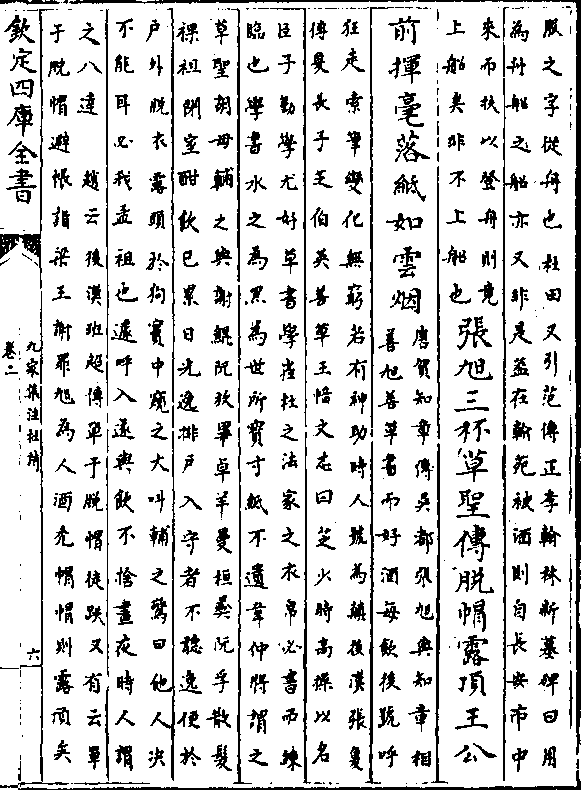 服之字從舟也杜田又引范傳正李翰林新墓碑曰用
為舟船之船亦又非是蓋在翰苑被酒則自長安市中
來而扶以登舟則竟
上船矣非不上船也
張旭三杯草聖傳脱帽露頂王公
前揮毫落紙如雲烟
唐賀知章傳吳都張旭與知章相
善旭善草書而好酒每飲後號呼
狂走索筆變化無窮若有神助時人號為顛後漢張奐
傳奐長子芝伯英善草王愔文志曰芝少時高操以名
臣子勤學尤好草書學崔杜之法家之衣帛必書而練
臨也學書水之為黑為世所寶寸紙不遺韋仲將謂之
草聖胡毋輔之與謝鯤阮放畢卓羊曼桓彛阮孚散髮
裸袒閉室酣飲已累日光逸排戸入守者不聽逸便於
戸外脱衣露頭於狗竇中窺之大叫輔之驚曰他人决
不能耳必我孟祖也遽呼入遂與飲不捨晝夜時人謂
之八達 趙云後漢班超傳單于脱帽徒跌又有云單
于脱帽避帳詣梁王謝罪旭為人酒禿帽帽則露頂矣
欽定四庫全書
九家集注杜詩
卷二
六